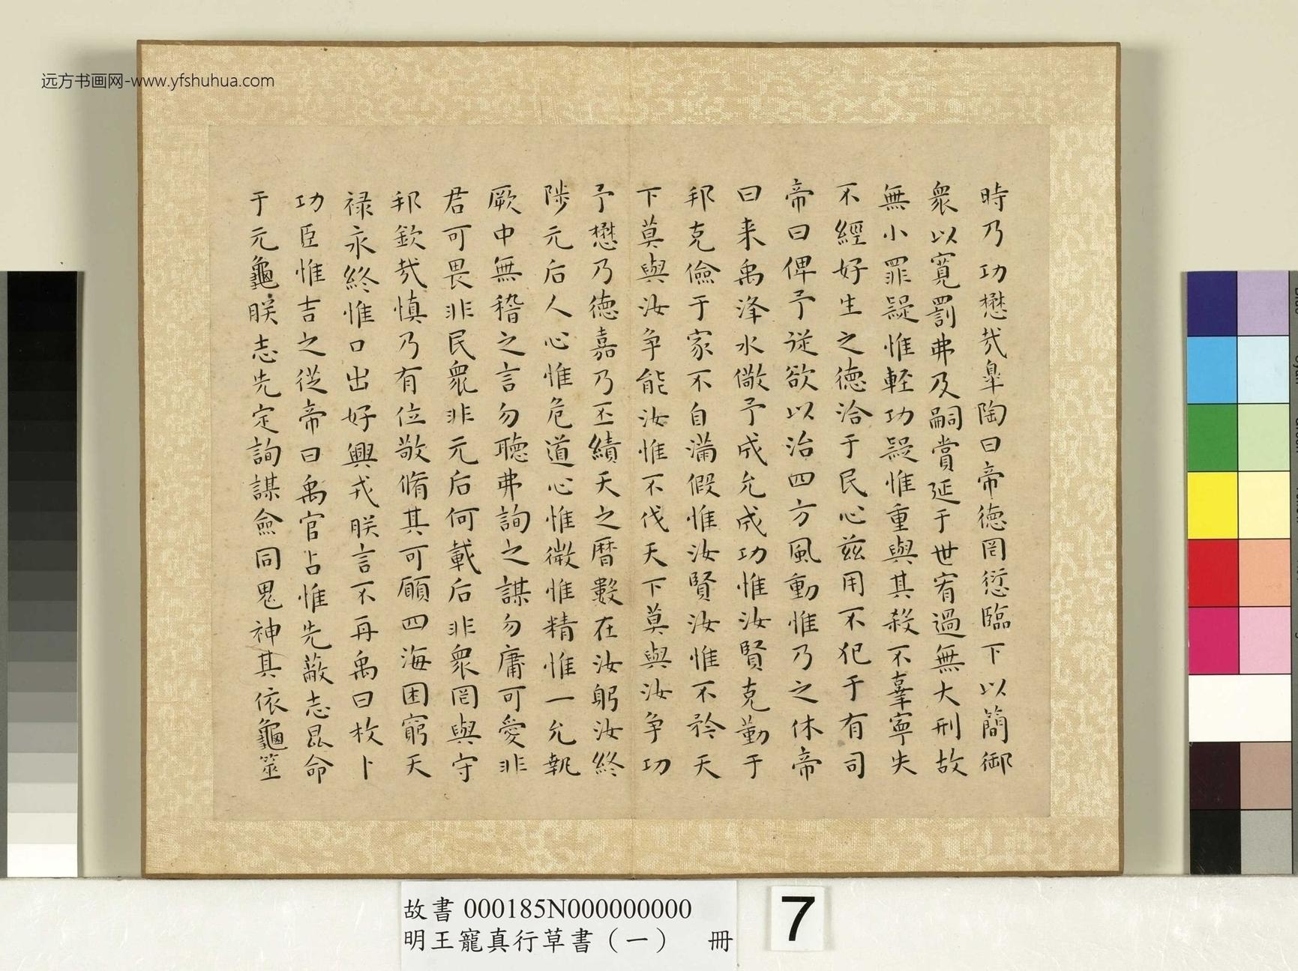 远方书画网-www.yfshuhua.com
時乃功懋哉皐陶曰帝徳罔愆臨下以簡御
衆以寛罰弗及嗣賞延于世宥過無大刑故
無小罪疑惟輕功疑惟重與其殺不辜寧失
不經好生之徳洽于民心兹用不犯于有司
帝曰俾予從欲以治四方風動惟乃之休帝
曰来禹洚水儆予成允成功惟汝賢克勤于
邦克儉于家不自滿假惟汝賢汝惟不矜天
下莫與汝争能汝惟不伐天下莫與汝争功
予懋乃徳嘉乃丕績天之曆數在汝躬汝終
陟元后人心惟危道心惟微惟精惟一允執
厥中無稽之言勿聽弗詢之謀勿庸可愛非
君可畏非民衆非元后何載后非衆罔與守
邦欽哉慎乃有位敬脩其可願四海困窮天
禄永終惟口出好興戎朕言不再禹曰枚卜
功臣惟吉之從帝曰禹官占惟先蔽志昆命
于元龜朕志先定詢謀僉同鬼神其依龜筮
故書 000185N000000000
明王寵真行草書（一） 冊
7